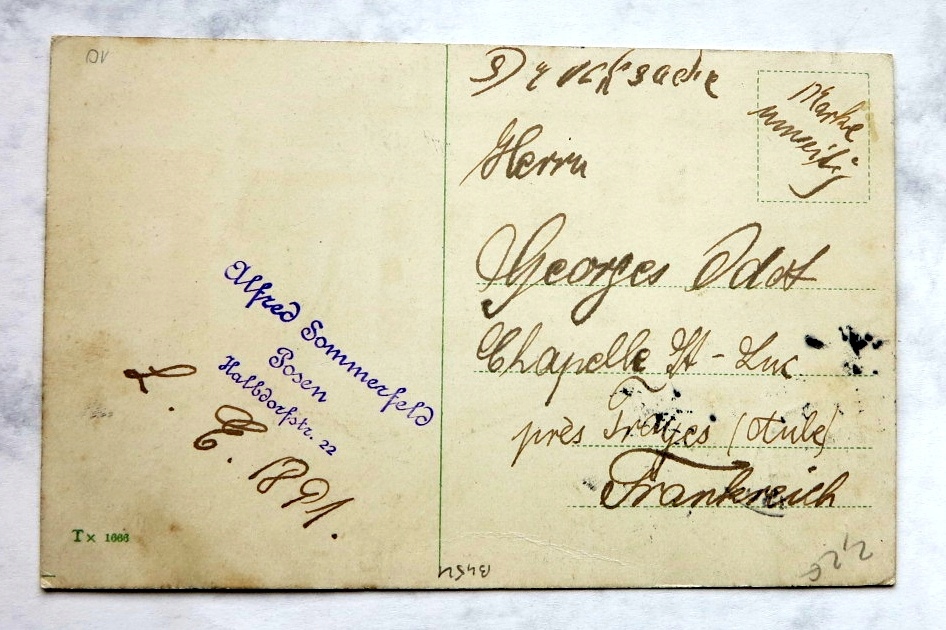 DV
Drucksache
Marke
umseitig
Herrn
Georges Odot
Chapelle St - Luc
près Troyes (Aube)
Frankreich
Alfred Sommerfeld
Posen
Halbdorfstr. 22
L. E. 1891.
Tx 1666